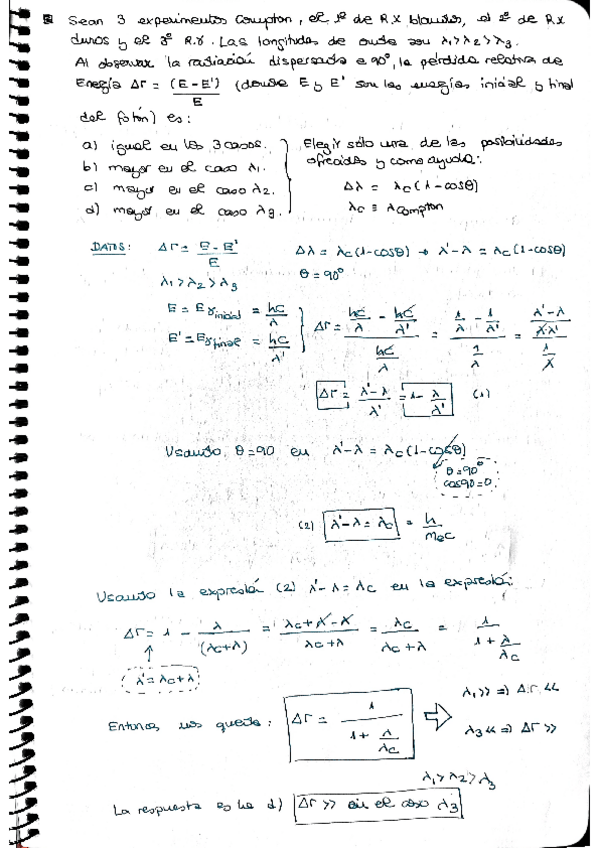 Sean 3 experimentos Compton, el 1º de R.X blandos, el 2º de Rx
duros y el 3º R.γ. Las longitudes de onda son λ1>λ2>λ3.
Al observar la radiación dispersada a 90º, la pérdida relativa de
Energía Δr = (E-E')/E (donde E y E' son las energías inicial y final
del fotón) es:
a) igual en los 3 casos.
b) mayor en el caso λ1.
c) mayor en el caso λ2.
d) mayor en el caso λ3.
Elegir sólo una de las posibilidades
ofrecidas y como ayuda:
Δλ = λc(1-cosθ)
λc ≡ λcompton
DATOS: Δr = E-E'/E
λ1>λ2>λ3
Δλ = λc(1-cosθ) → λ'-λ = λc(1-cosθ)
θ=90º
E = Eγinicial = hc/λ
E' = Eγfinal = hc/λ'
Δr = (hc/λ - hc/λ')/(hc/λ) = (1/λ - 1/λ')/(1/λ) = ((λ'-λ)/(λλ'))/(1/λ)
Δr = (λ'-λ)/λ' = 1 - λ/λ' (1)
Usando θ=90 en λ'-λ = λc(1-cosθ)
θ=90º
cos90=0
(2) λ'-λ = λc = h/mec
Usando la expresión (2) λ'-λ = λc en la expresión:
Δr = 1 - λ/(λc+λ) = (λc+λ-λ)/(λc+λ) = λc/(λc+λ) = 1/(1+λ/λc)
λ'=λc+λ
Entonces nos queda: Δr = 1/(1+λ/λc)
λ1>> => Δr <<
λ3<< => Δr >>
λ1>λ2>λ3
La respuesta es la d) Δr >> en el caso λ3